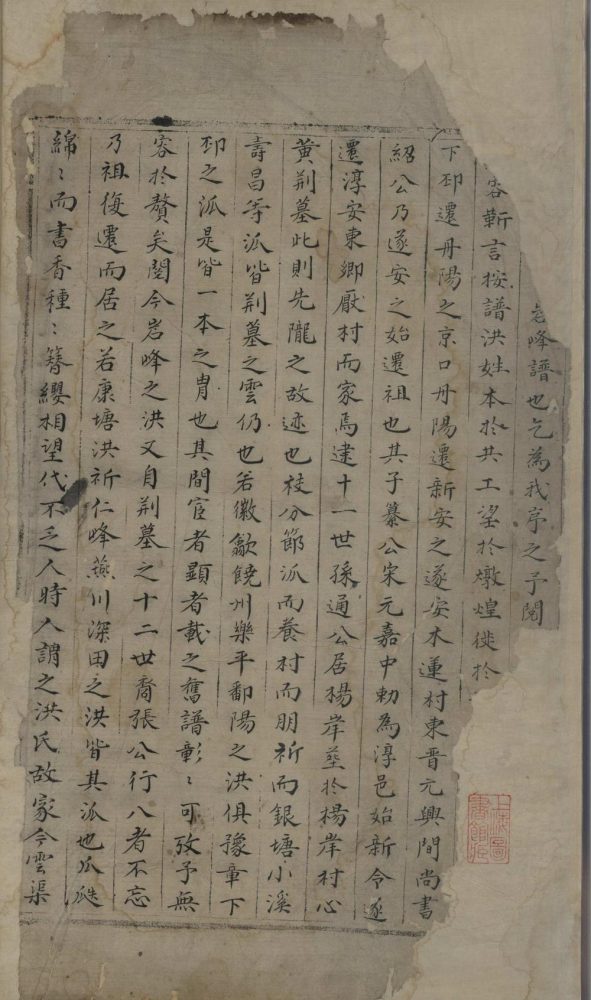 峰譜也乞為我亭之予閱
容靳言按譜洪姓本於共工望於燉煌徙於
下邳遷丹陽之京口丹陽遷新安之遂安木蓮村東晋元興間尚書
紹公乃遂安之始遷祖也其子纂公宋元嘉中勅為淳邑始新令遂
遷淳安東鄉厭村而家焉逮十一世孫通公居楊岸塟於楊岸村心
黄荆墓此則先隴之故迹也枝分節派而養村而明祈而銀塘小溪
壽昌等派皆荆墓之雲仍也若徽歙饒州樂平鄱陽之洪俱豫章下
邳之派是皆一本之胄也其間宦者顯者載之舊譜彰〻可攷予無
容於贅矣閱今岩峰之洪又自荆墓之十二世裔張公行八者不忘
乃祖復遷而居之若康塘洪祈仁峰燕川深田之洪皆其派也瓜瓞
綿〻而書香種〻簪纓相望代不乏人時人謂之洪氏故家今雲渠
上海圖書館藏